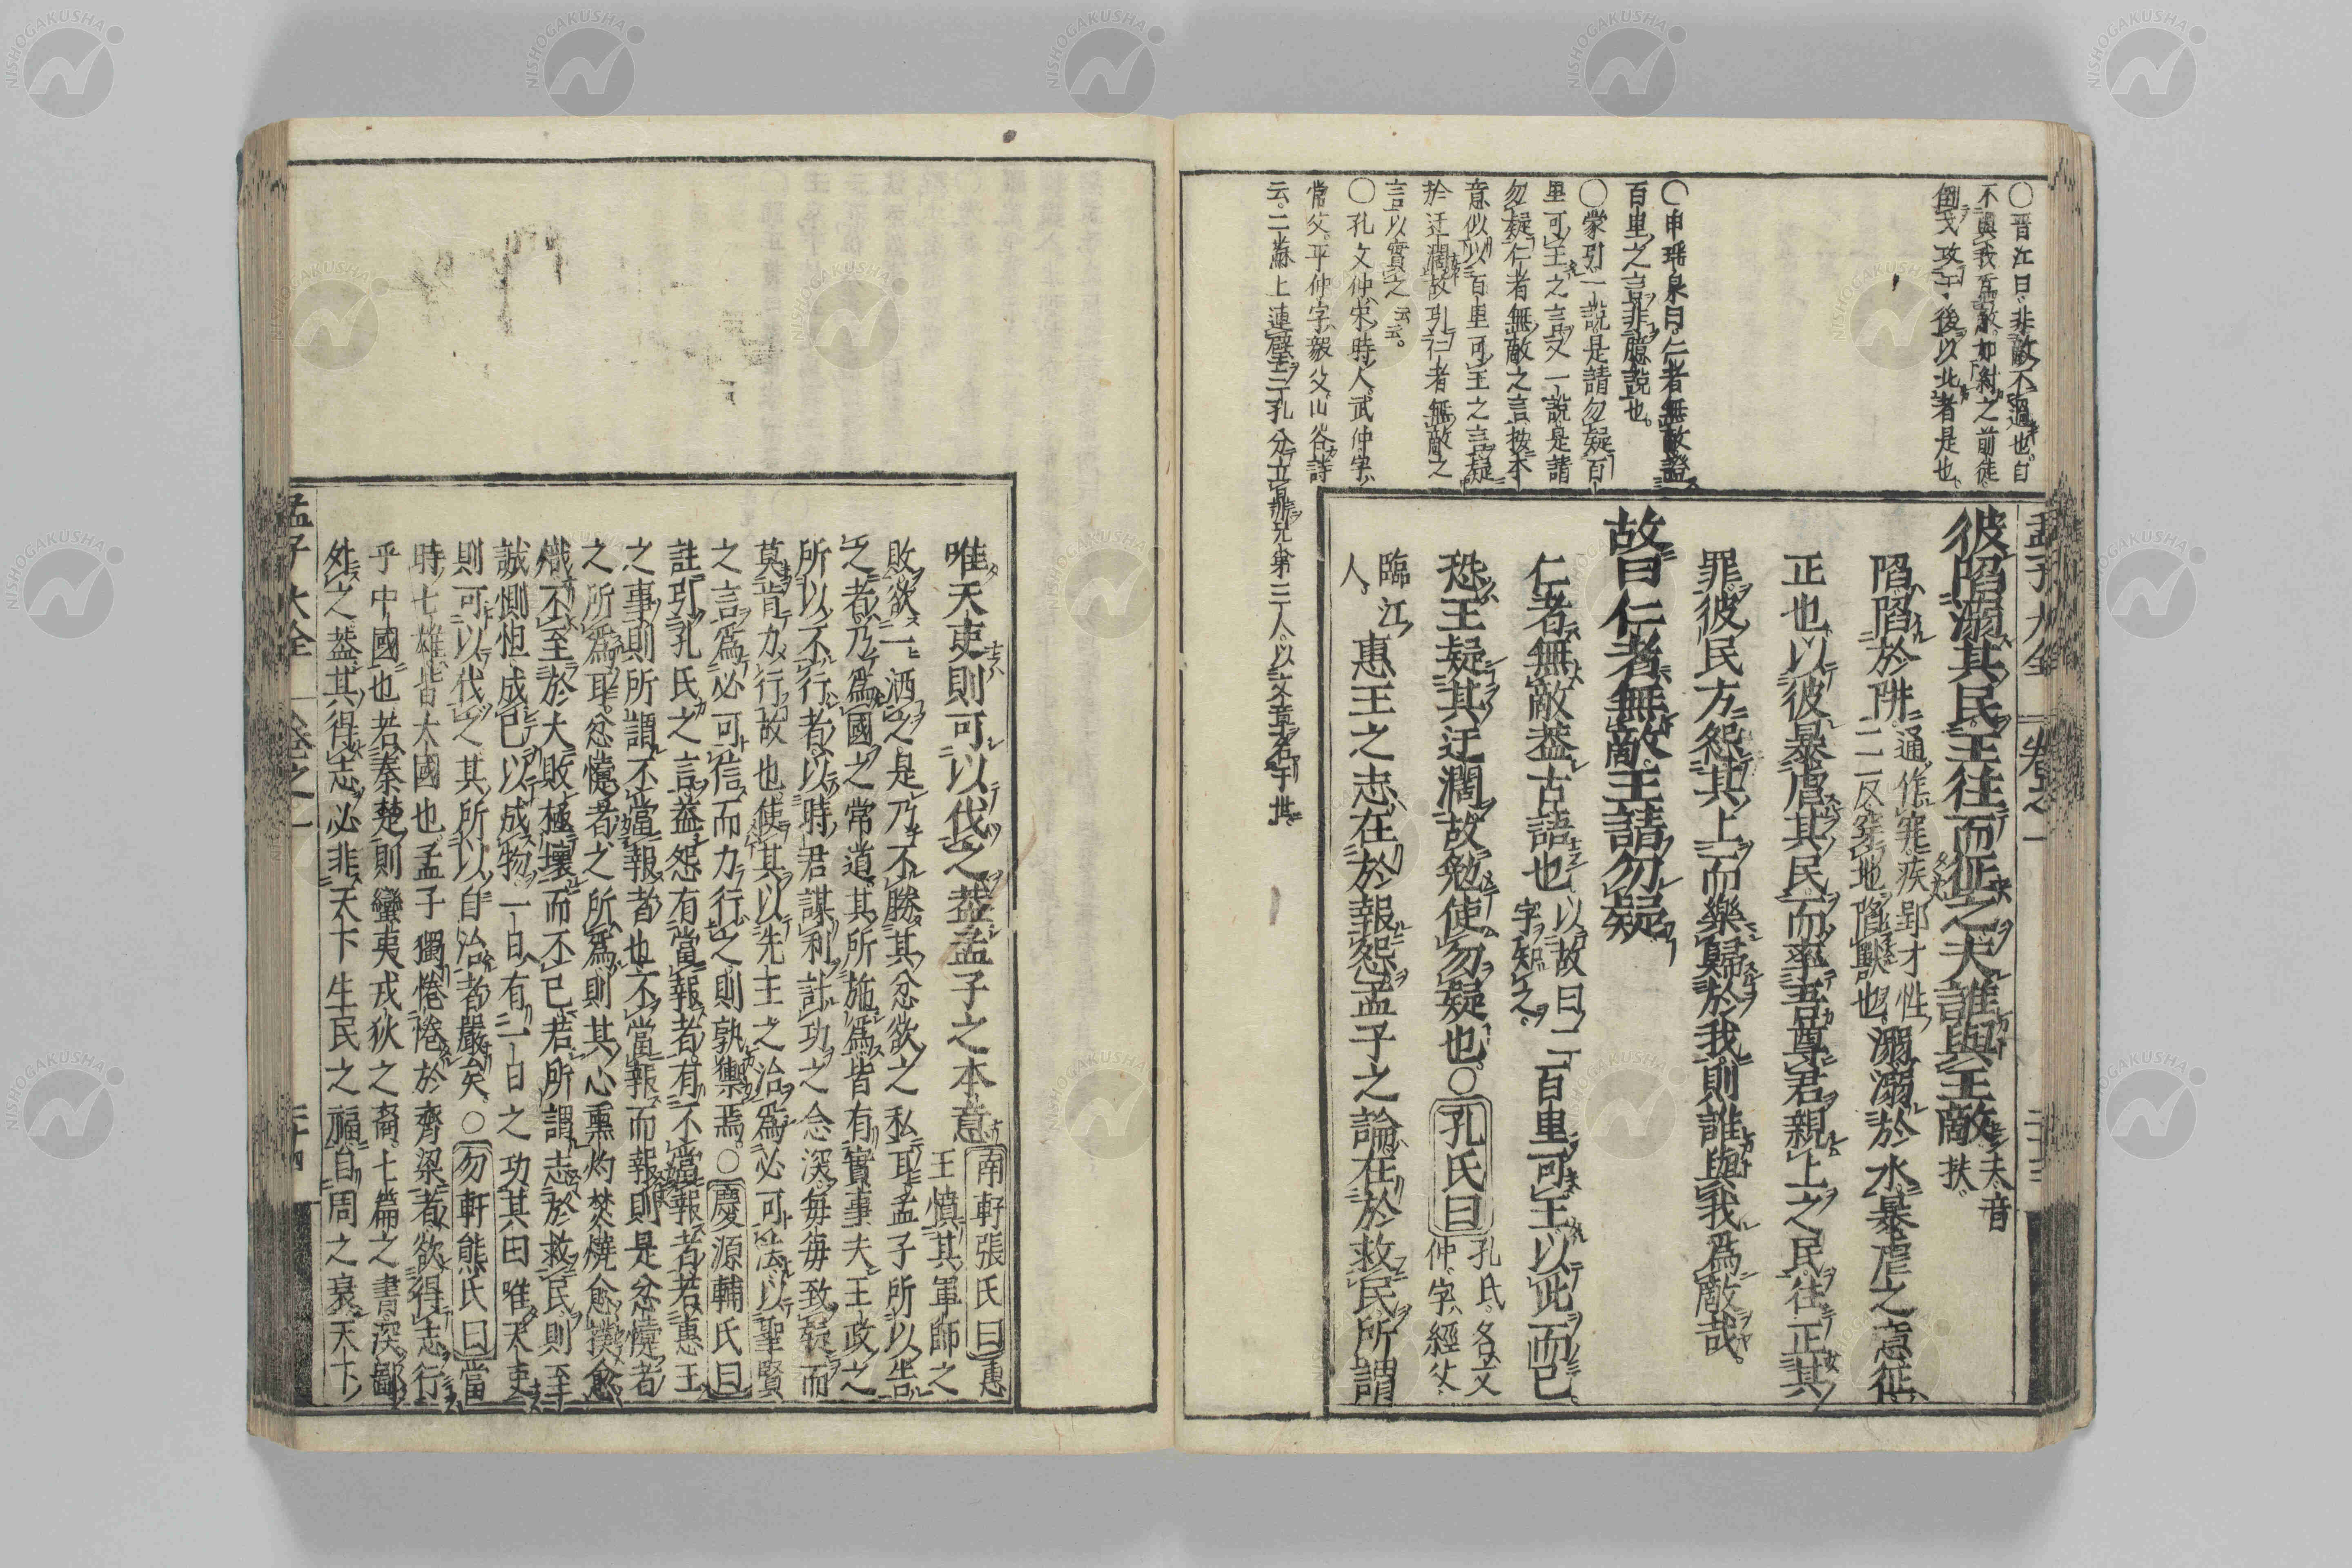 孟子大全 卷之一 二十三
○晋江曰非敵不過也自
不與我爲敵如紂之前徒
倒戈攻于後以北者是也
○申瑶泉曰仁者無敵證
百里之言非臆說也
○蒙引一說是請勿疑百
里可王之言又一說是請
勿疑仁者無敵之言按本
意似以百里可王之言疑
於迂濶故引仁者無敵之
言以實之云云
○孔文仲宋時人武仲字
常父平仲字毅父山谷詩
云二蘇上連璧三孔分立鼎兄弟三人以文章名于世
彼陷溺其民王往而征之夫誰與王敵夫音
扶
陷陷於阱通作穽疾郢才性
二反穽地陷獸也溺溺於水暴虐之意征
正也以彼暴虐其民而率吾尊君親上之民往正其
罪彼民方怨其上而樂歸於我則誰與我爲敵哉
故曰仁者無敵王請勿疑
仁者無敵蓋古語也以故曰二
字知之百里可王以此而已
恐王疑其迂濶故勉使勿疑也○孔氏曰孔氏名文
仲字經父
臨江
人惠王之志在於報怨孟子之論在於救民所謂
唯天吏則可以伐之蓋孟子之本意南軒張氏曰惠
王憤其軍師之
敗欲一洒之是乃不勝其忿欲之私耳孟子所以告
之者乃爲國之常道其所施爲皆有實事夫王政之
所以不行者以時君謀利計功之念深每每致疑而
莫肯力行故也使其以先王之治爲必可法以聖賢
之言爲必可信而力行之則孰禦焉○慶源輔氏曰
註引孔氏之言蓋怨有當報者有不當報者若惠王
之事則所謂不當報者也不當報而報則是忿懥者
之所爲耳忿懥者之所爲則其心熏灼焚燒愈撲愈
熾不至於大敗極壞而不已若所謂志於救民則至
誠惻怛成已以成物一日有一日之功其曰唯天吏
則可以伐之其所以自治者嚴矣○勿軒熊氏曰當
時七雄皆大國也孟子獨惓惓於齊梁者欲得志行
乎中國也若秦楚則蠻夷戎狄之裔七篇之書深鄙
外之蓋其得志必非天下生民之福自周之衰天下
孟子大全 卷之一 二十四